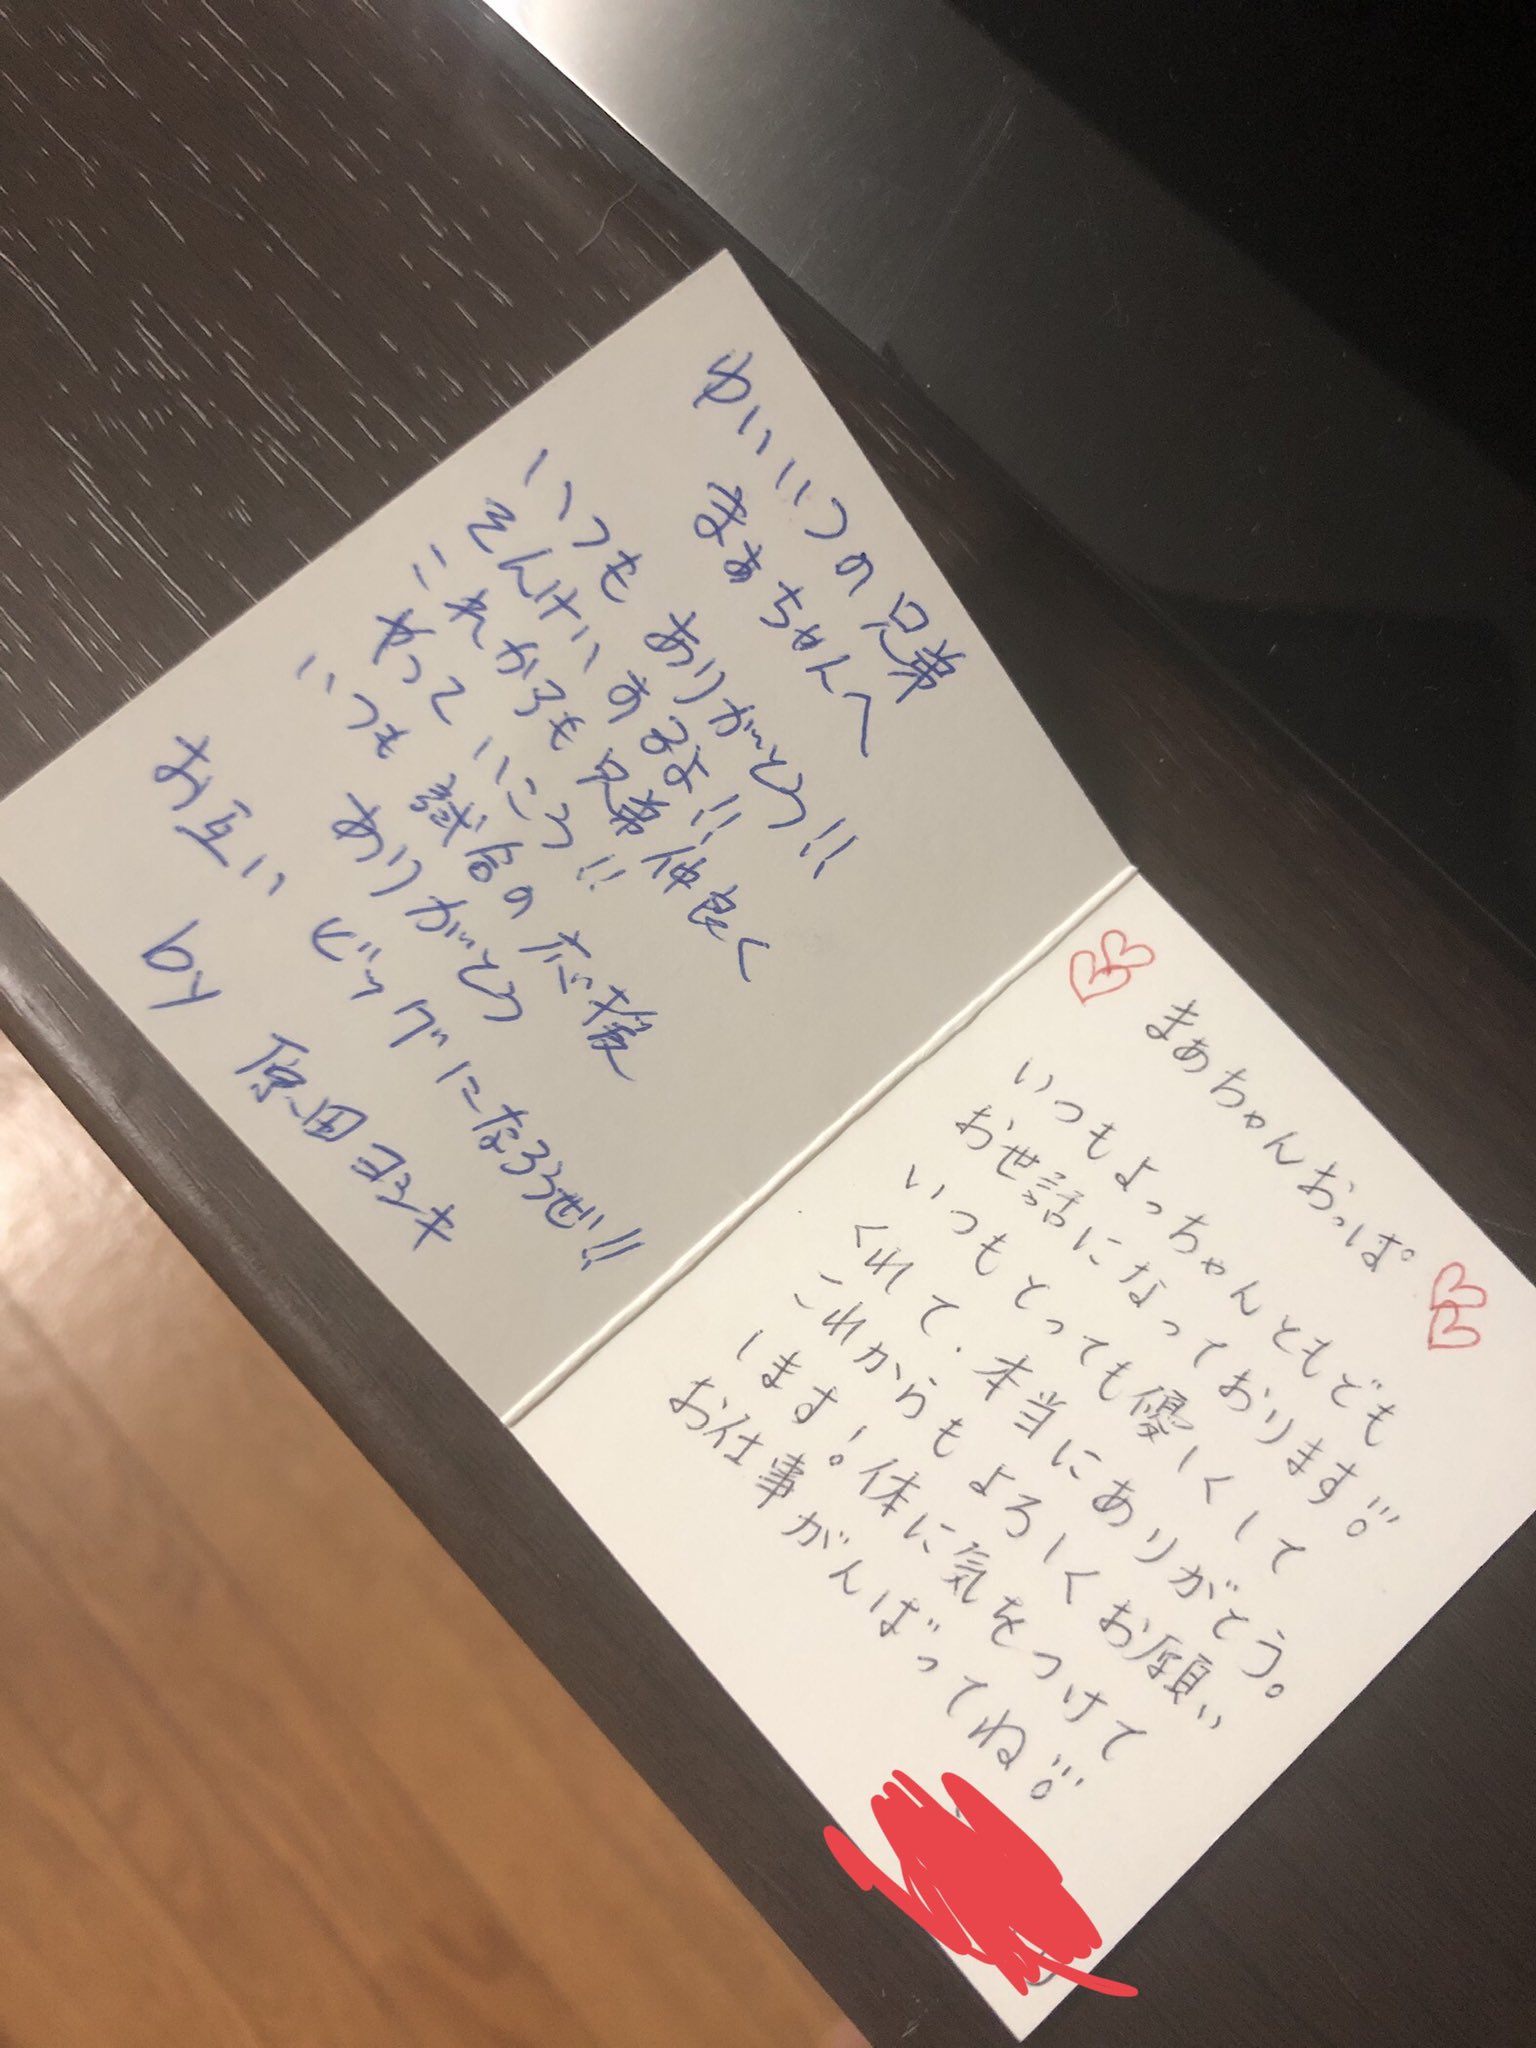 ゆいいつの兄弟
まぁちゃんへ
いつもありがとう!!
そんけいあるよ!!
これからも兄弟仲良く
やっていこう!!
いつも試合の応援
ありがとう
お互いビッグになろうぜ!!
by 原田ヨシキ
まぁちゃんおっぱ。
いつもよっちゃんともども
お世話になっております!!!
いつもとっても優しくして
くれて、本当にありがとう。
これからもよろしくお願い
します!体に気をつけて
お仕事がんばってね!!!